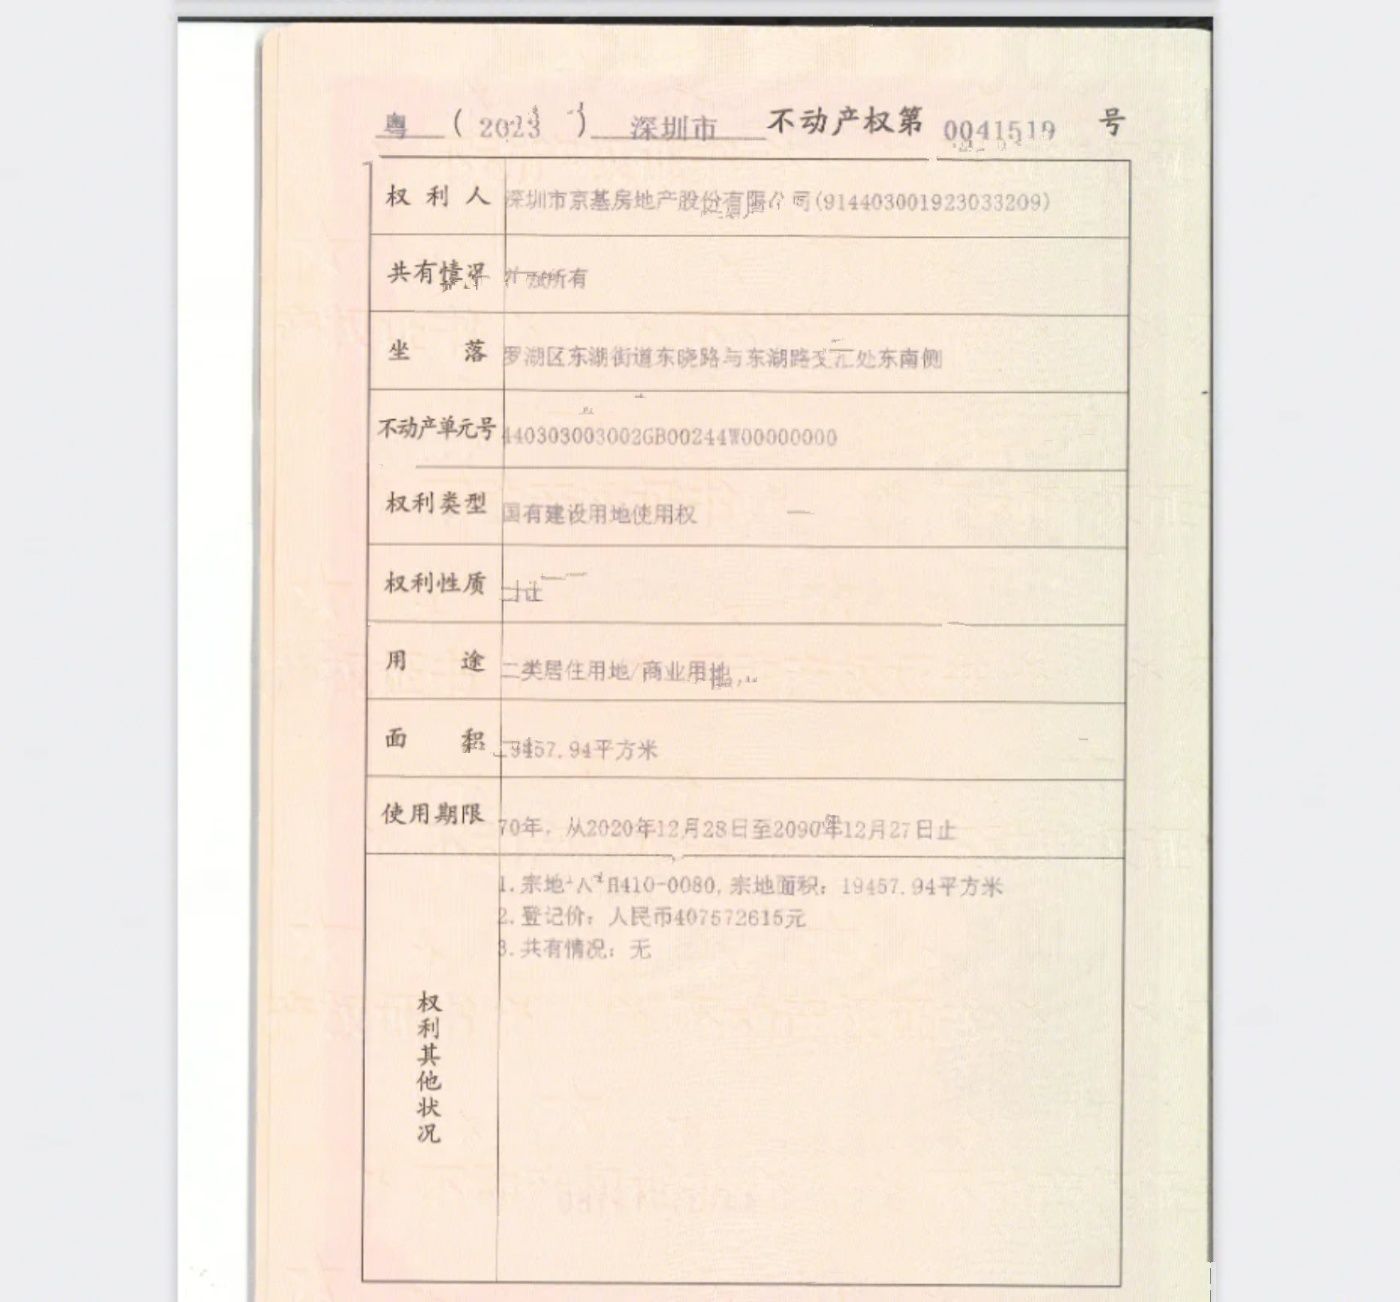 粤 ( 2023 ) 深圳市 不动产权第 0041519 号
权利人 深圳市京基房地产股份有限公司(914403001923033209)
共有情况 所有
坐落 罗湖区东湖街道东晓路与东湖路交汇处东南侧
不动产单元号 440303003002GB00244W00000000
权利类型 国有建设用地使用权
权利性质 让
用途 二类居住用地/商业用地
面积 19457.94平方米
使用期限 70年，从2020年12月28日至2090年12月27日止
权利其他状况
1.宗地 410-0080,宗地面积：19457.94平方米
2.登记价：人民币407572615元
3.共有情况：无